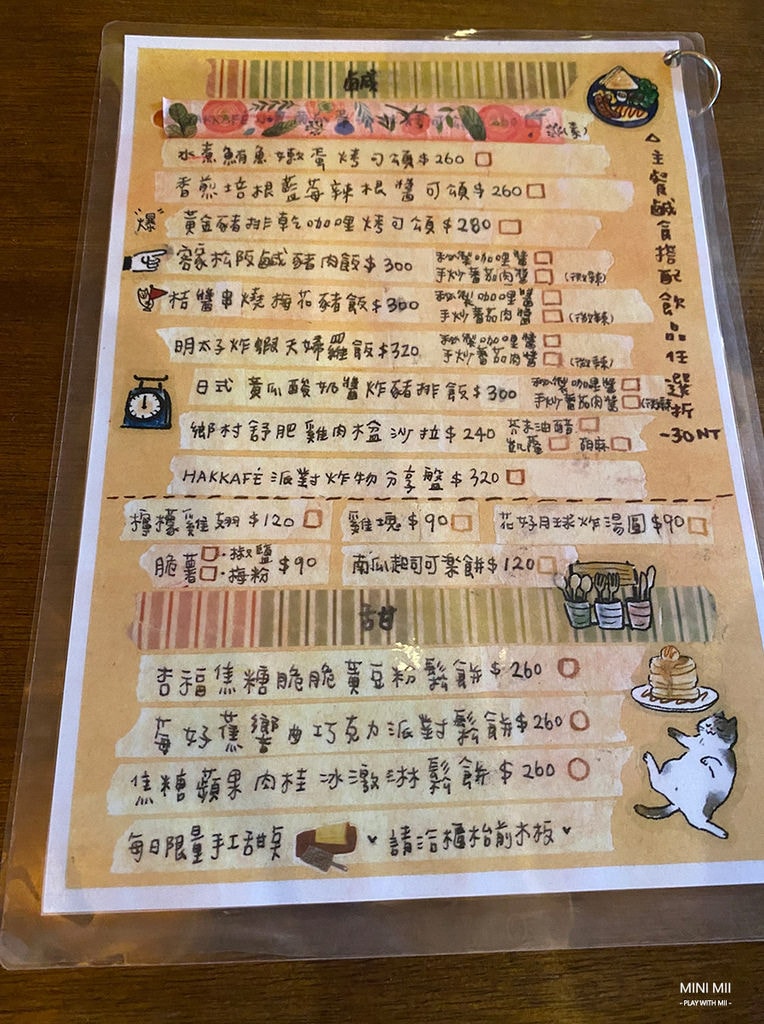 鹹
水煮鮪魚嫩蛋烤可頌$260
香煎培根藍莓辣根醬可頌$260
"爆" 黃金豬排乾咖哩烤可頌$280
客家松阪鹹豬肉飯$300 私製咖哩醬
手炒番茄肉醬 (微辣)
桔醬串燒梅花豬飯$300 私製咖哩醬
手炒番茄肉醬 (微辣)
明太子炸蝦天婦羅飯$320 私製咖哩醬
手炒番茄肉醬 (微辣)
日式黃瓜酸奶醬炸豬排飯$300 私製咖哩醬
手炒番茄肉醬 (微辣
鄉村舒肥雞肉木盆沙拉$240 芥末油醋
凱薩 胡麻
HAKKAFÉ派對炸物分享盤$320
△主餐鹹食搭配飲品任選折
-30NT
檸檬雞翅$120 雞塊$90 花好月球炸湯圓$90
脆薯 ·椒鹽 ·梅粉 $90 南瓜起司可樂餅$120
甜
杏福焦糖脆脆黃豆粉鬆餅$260
莓好蕉響曲巧克力派對鬆餅$260
焦糖蘋果肉桂冰淇淋鬆餅$260
每日限量手工甜桌 ♥ 請洽櫃枱前木板♥
MINI MII
- PLAY WITH MII -